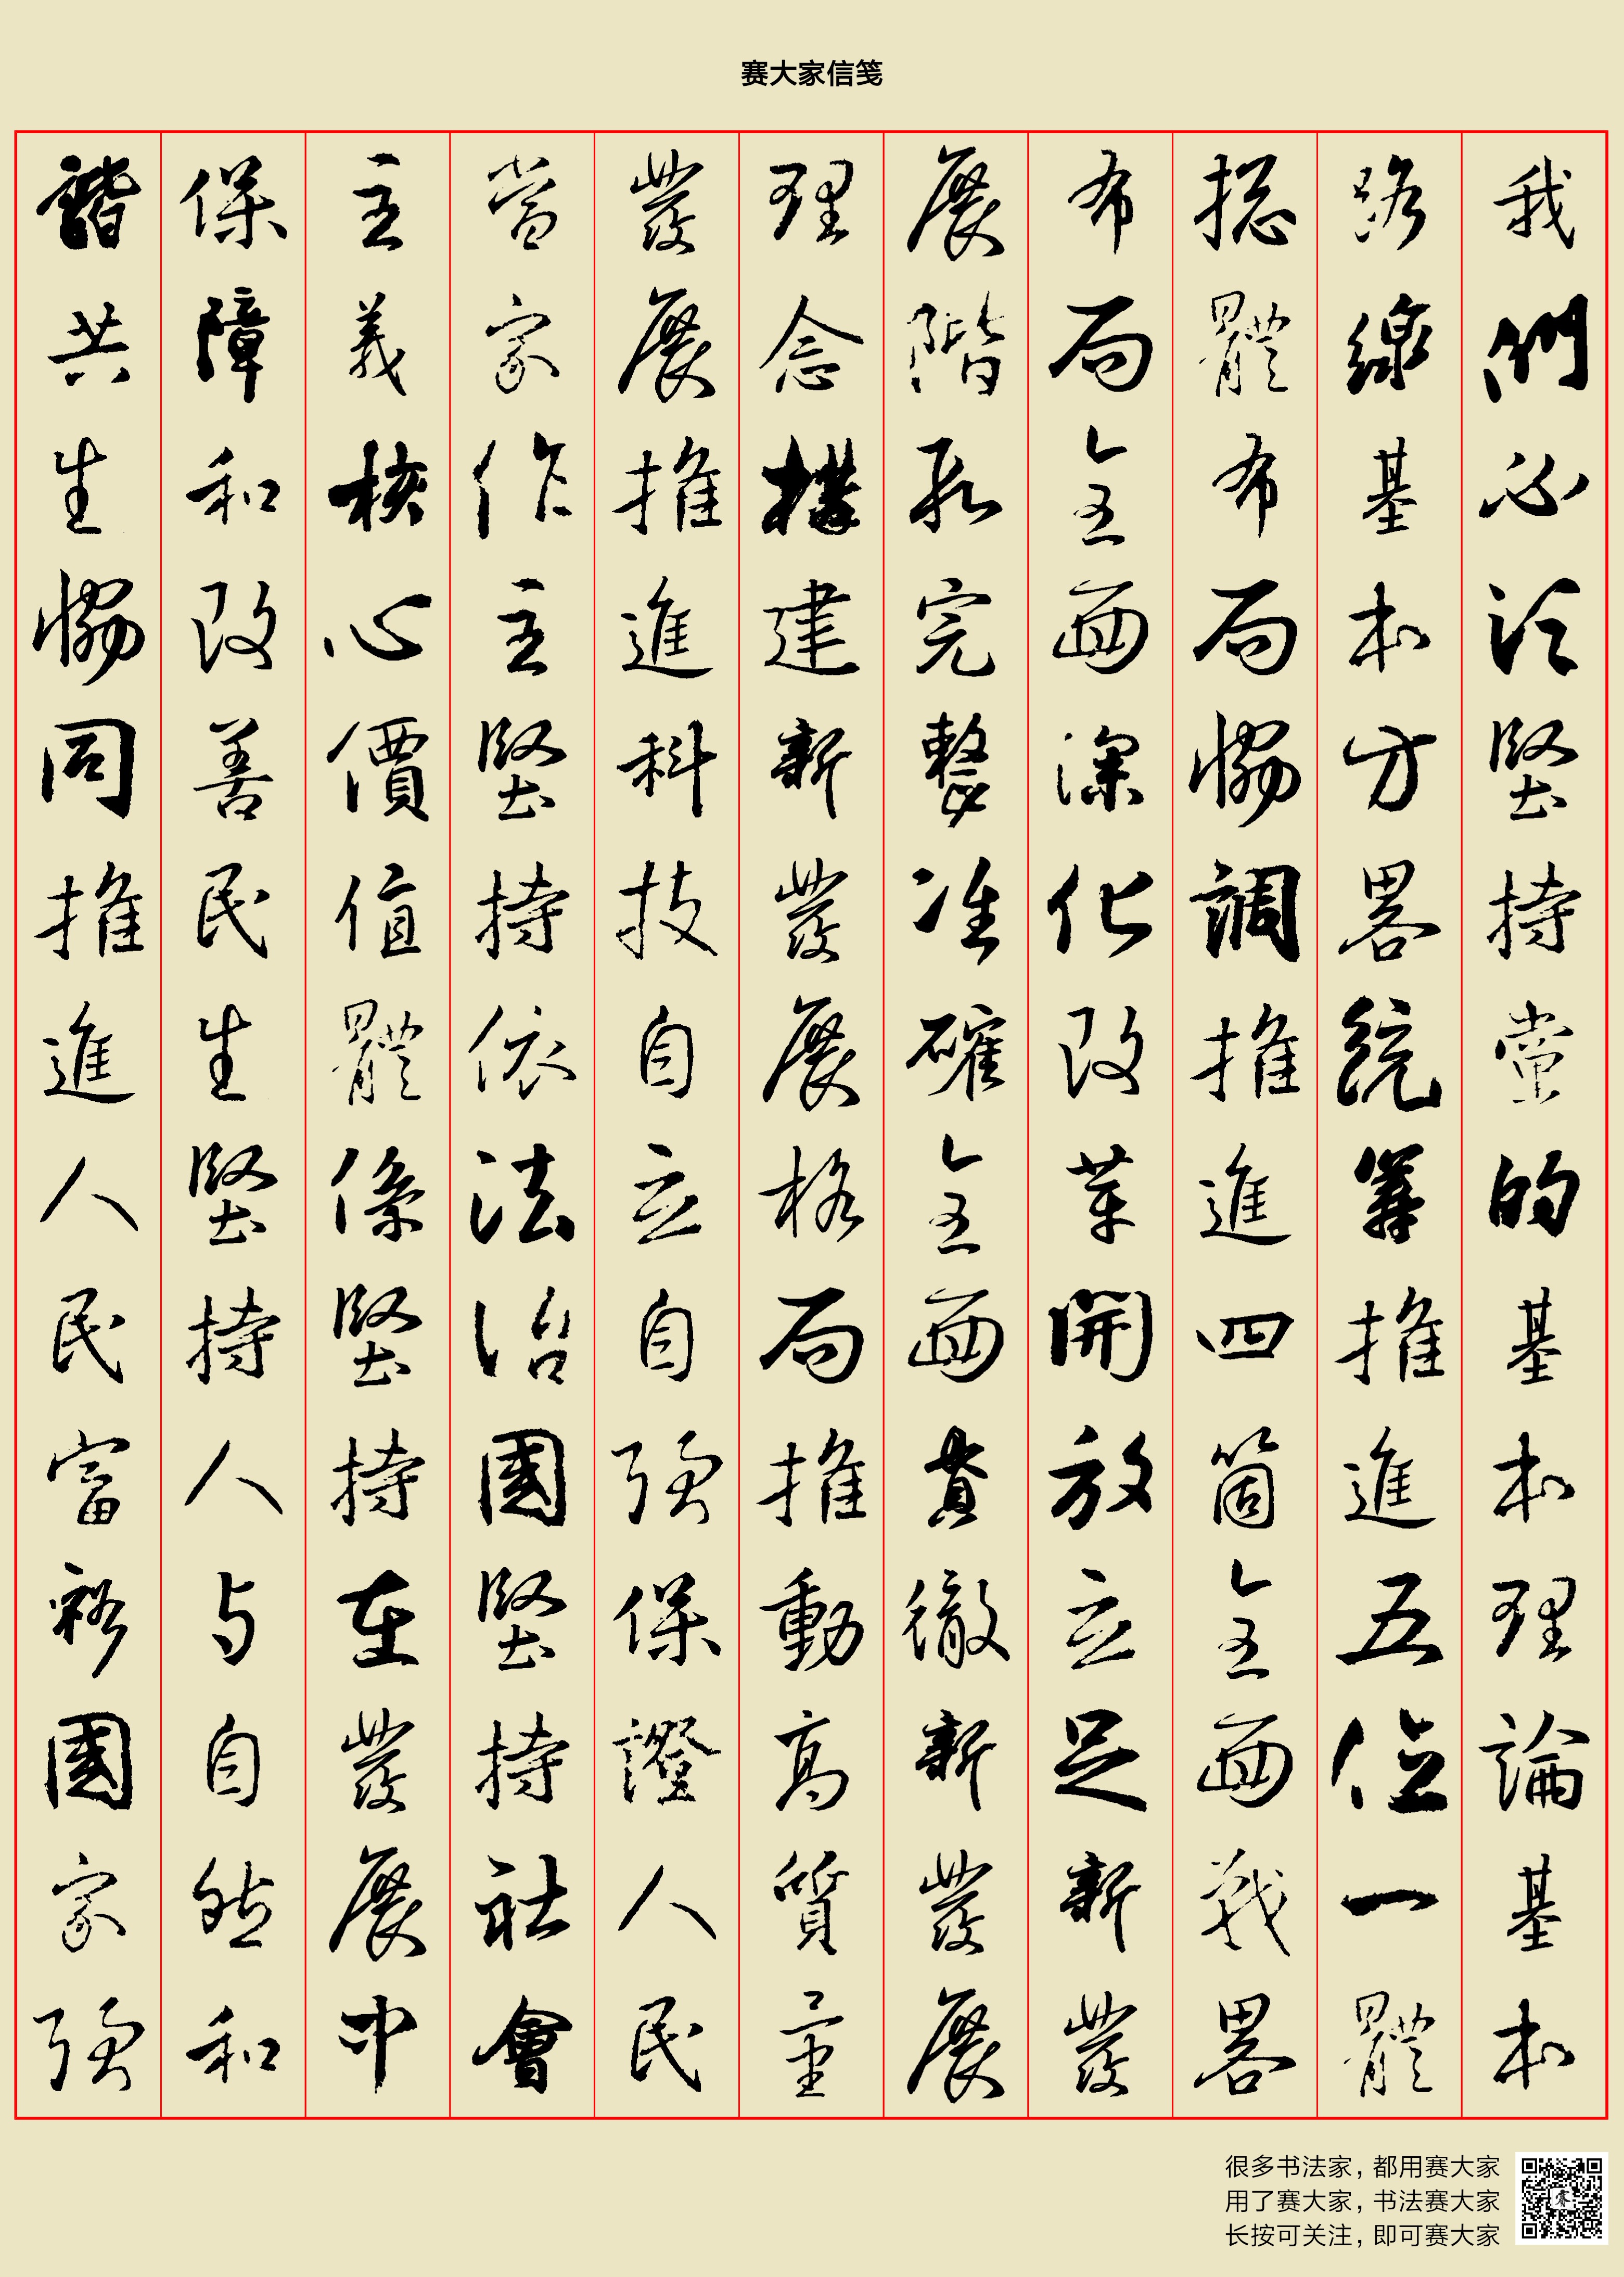 赛大家信笺
我們必須堅持黨的基本理論基本
路線基本方畧統籌推進五位一體
捴體布局協調推進四箇全面戰畧
布局全面深化改革開放立足新發
展階段完整准確全面貫徹新發展
理念構建新發展格局推動高質量
發展推進科技自立自強保證人民
當家作主堅持依法治國堅持社會
主義核心價值體係堅持在發展中
保障和改善民生堅持人与自然和
諧共生協同推進人民富裕國家強
很多书法家，都用赛大家
用了赛大家，书法赛大家
长按可关注，即可赛大家